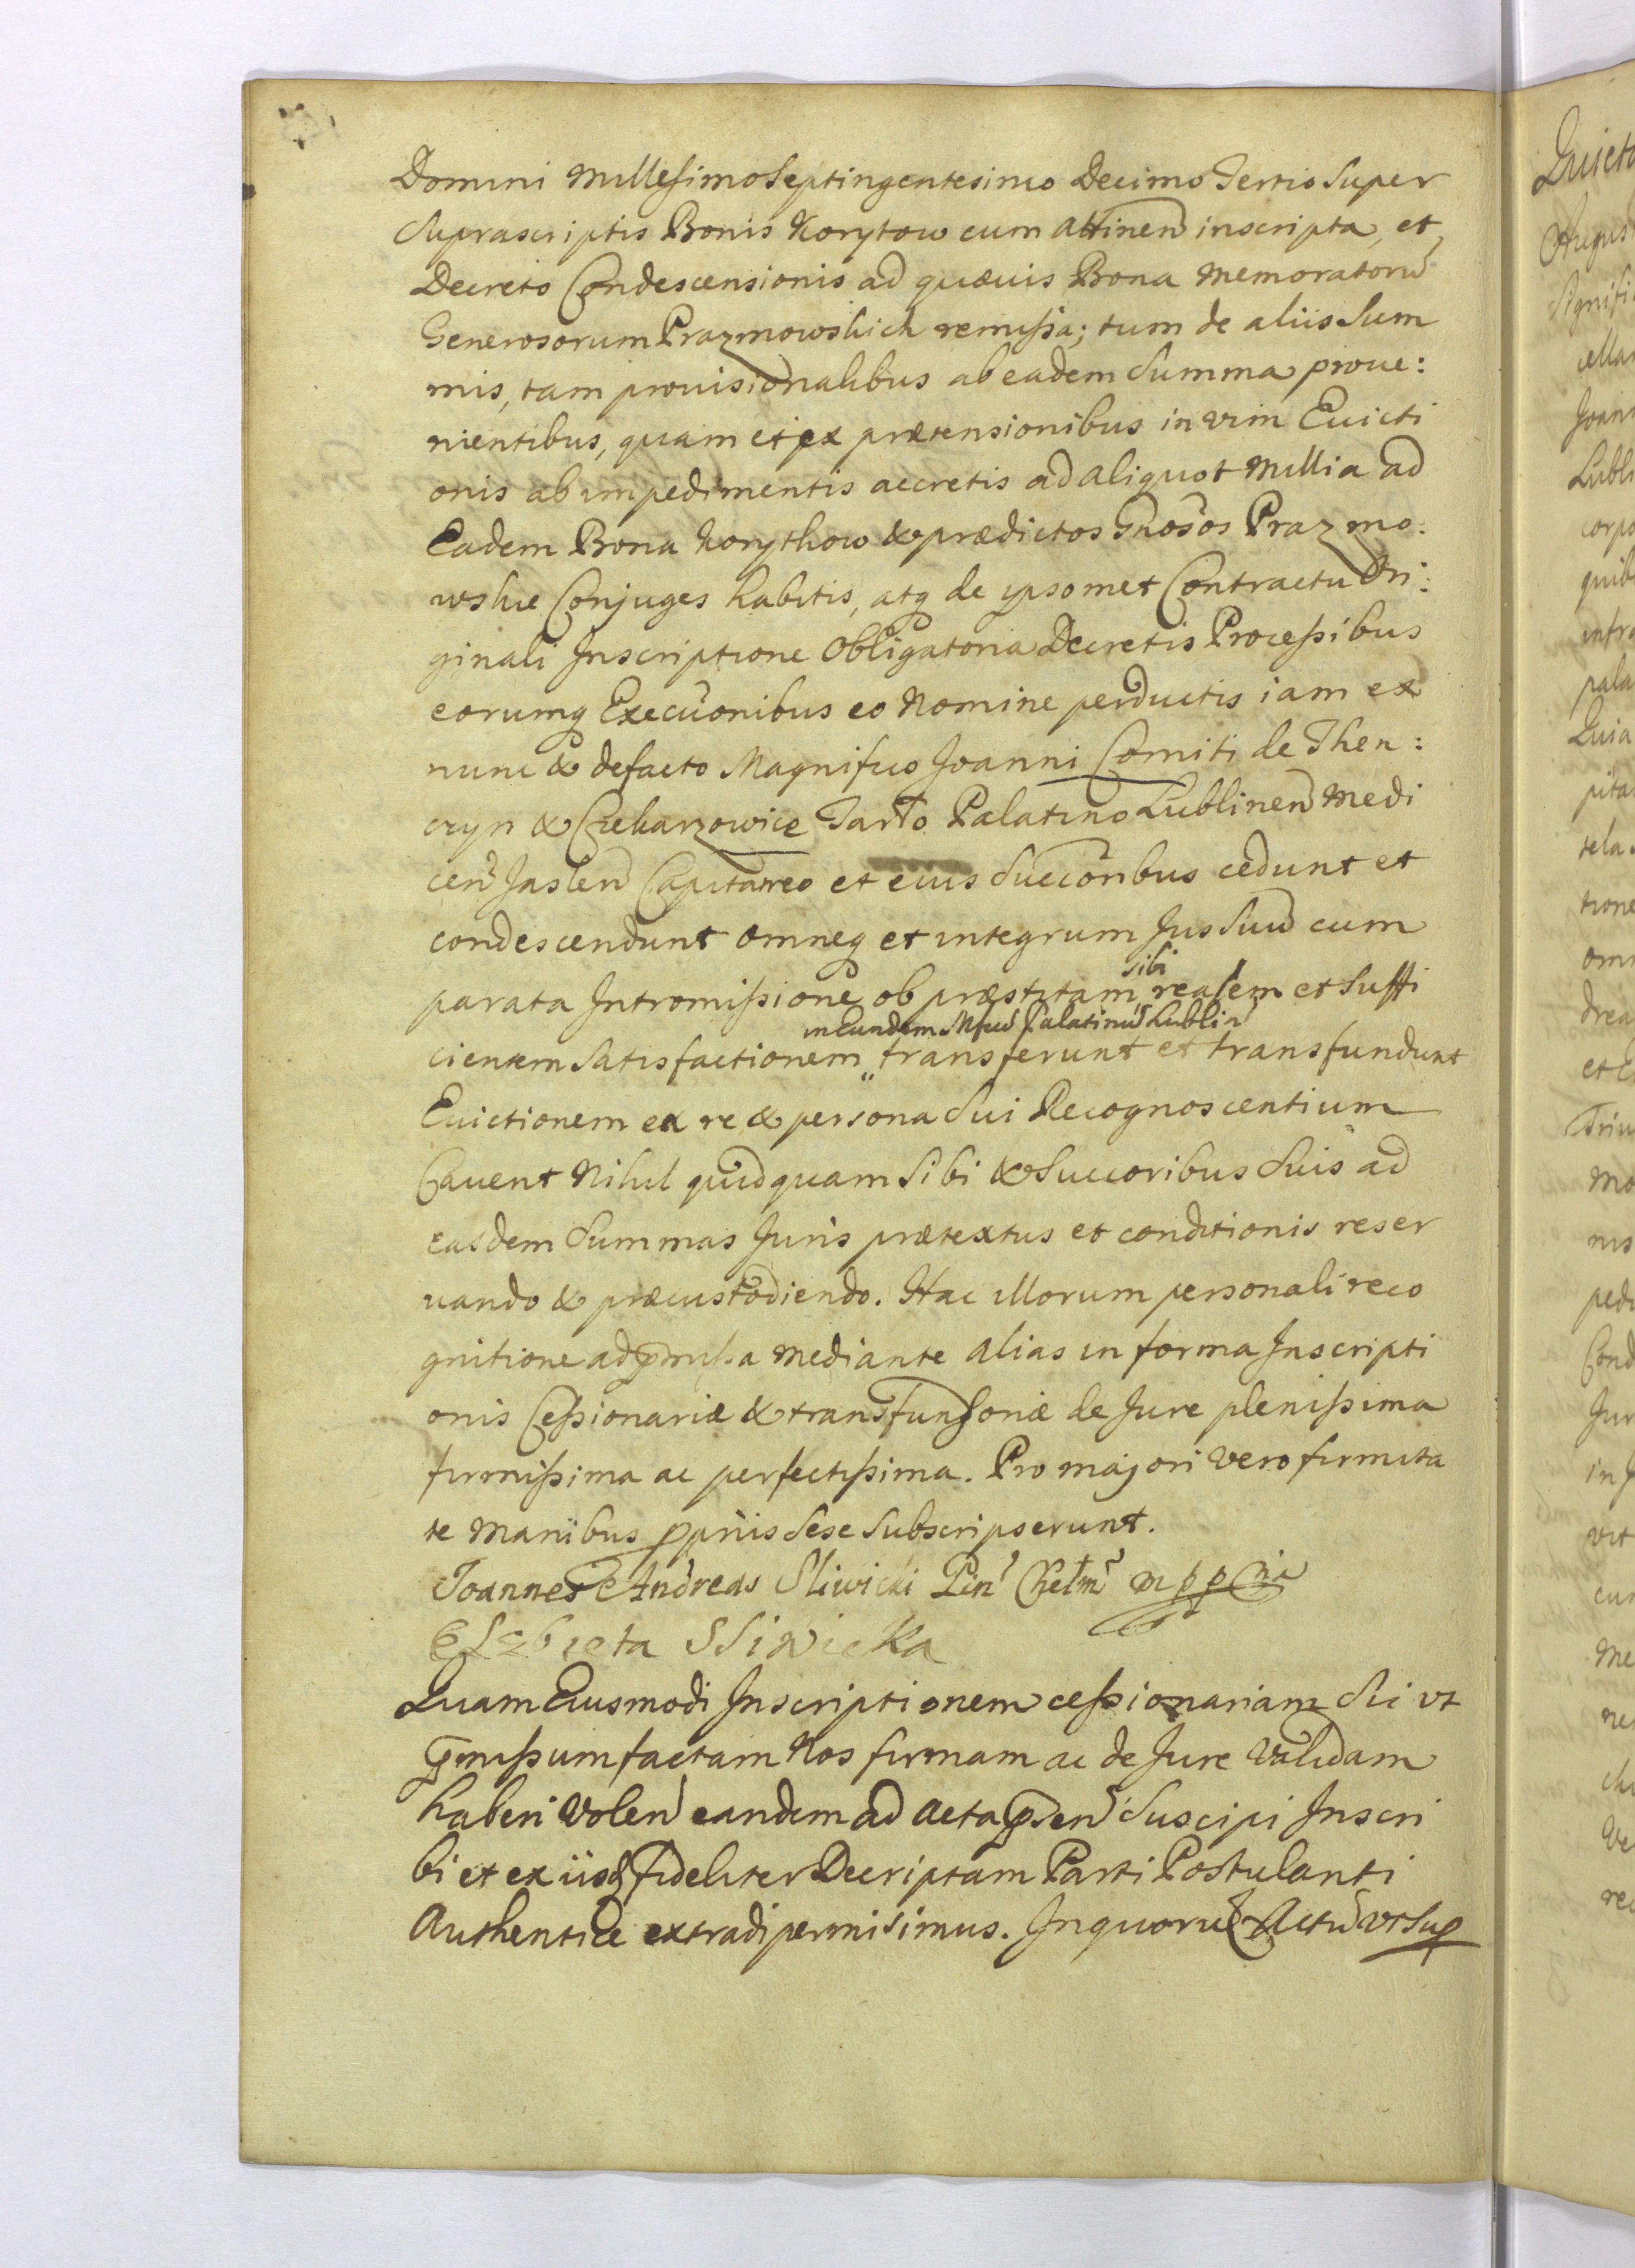 Domini Millesimo Septingentesimo Decimo Tertio Super
Suprascriptis Bonis Korytow cum attinen inscripta, et
Decreto Condescensionis ad quævis Bona Memoratorū
Generosorum Prazmowskich remissa; tum de aliis Sum
mis, tam provisionalibus ab eadem Summa prove:
nientibus, quam et ex prætensionibus in vim Evicti
onis ab impedimentis accretis ad aliquot Millia ad
Eadem Bona Korythow & prædictos Gnosos Prazmo:
wskie Conjuges habitis, atq de ipsomet Contractu Ori:
ginali Inscriptione Obligatoria Decretis Processibus
eorumq Execuonibus eo Nomine perductis iam ex
nunc & defacto Magnifico Joanni Comiti de Then:
czyn & Czekarzowice Tarło Palatino Lublinen Medi
cen Jaslen Capitaneo et eius Succoribus cedunt et
condescendunt omneq et integrum Jus Suū cum
sibi
parata Intromissione ob præstitam realem et Suffi
in Eundem Mfcū Palatinū Lublin
cientem Satisfactionem transferunt et transfundunt
Evictionem ex re & persona Sui Recognoscentium
Cavent Nihil quidquam Sibi & Succoribus Suis ad
easdem Summas Juris prætextus et conditionis reser
vando & præcustodiendo. Hac illorum personali reco
gnitione ad pmissa mediante alias in forma Inscripti
onis Cessionariæ & transfunsoriæ de Jure plenissima
firmissima ac perfectissima. Pro majori vero firmita
te Manibus ppriis Sese Subscripserunt.
Joannes Andreas Sliwicki Pin Chełm mpp
Elzbieta Sliwicka
Quam Eiusmodi Inscriptionem cessionariam Sic vt
pmissum factam Nos firmam ac de Jure Validam
haberi Volen eandem ad acta psen Suscipi Inscri
bi et ex iisd fideliter Decriptam Parti Postulanti
Authentice extradi permisimus. In quorū Actū vt Sup